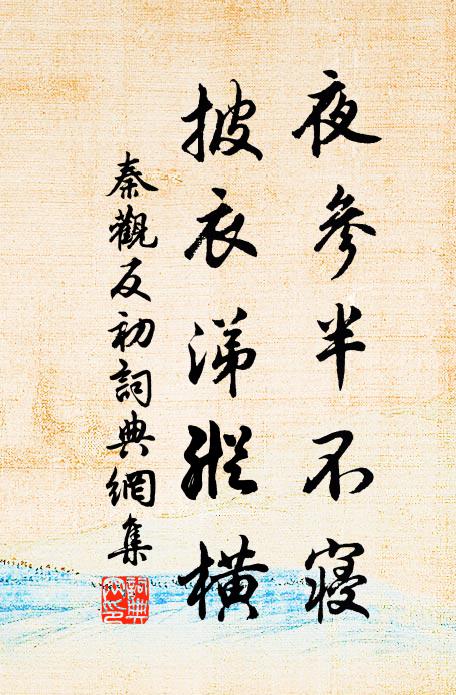 夜參半不寝
披衣涕縱橫
秦觀反初詞典網集